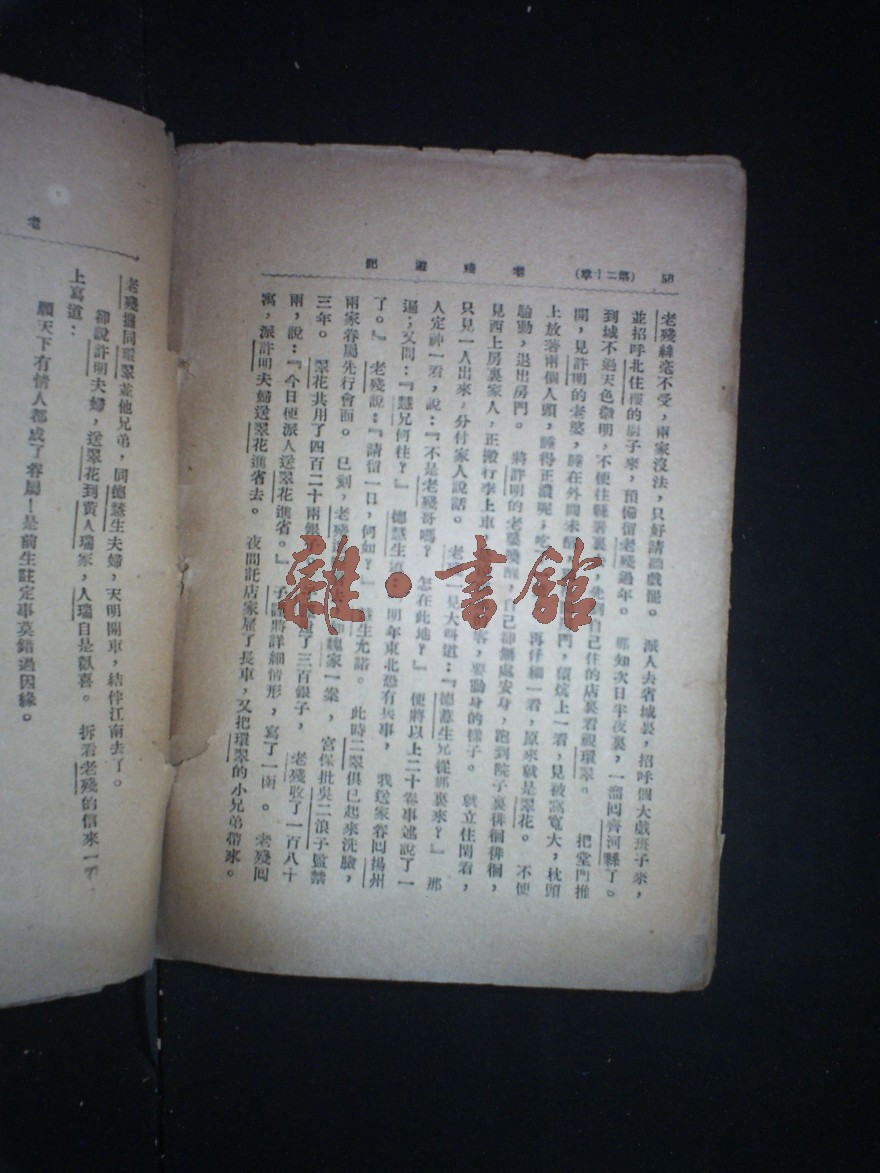 58
(第二十章)
老殘遊記
老殘絲毫不受,兩家沒法,只好請聽戲罷。 派人去省城裏,招呼個大戲班子來,
並招呼北住樓的廚子來,預備留老殘過年。 那知次日半夜裏,一溜囘齊河縣了。
到城不過天色微明,不便往縣署裏 自己住的店裏看視環翠。 把堂門推
開,見許明的老婆,睡在外間未醒 門,價炕上一看,見被窩寬大,枕頭
上放著兩個人頭,睡得正濃呢, 再仔細一看,原來就是翠花。 不便
驚動,退出房門。 將許明的老婆喚醒,自己卻無處安身,跑到院子裏徘徊徘徊,
見西上房裏家人,正搬行李上車 客,要動身的樣子。 就立住閑看,
只見一人出來,分付家人說話。 老 一見大叫道:『德慧生兄從那裏來?』 那
人定神一看,說:『不是老殘哥嗎? 怎在此地?』 便將以上二十卷事述說了一
遍;又問:『慧兄何往?』 德慧生道: 明年東北恐有兵事, 我送家眷囘揚州
了。』 老殘說:『請留一日,何如?』 慧生允諾。 此時二翠俱已起來洗臉,
兩家眷屬先行會面。 巳刻,老殘 魏家一案, 宮保批吳二浪子監禁
三年。 翠花共用了四百二十兩銀 了三百銀子, 老殘收了一百八十
兩,說:『今日便派人送翠花進省。』 子謹將詳細情形, 寫了一函 。 老殘囘
寓,派許明夫婦送翠花進省去。 夜間託店家雇了長車,又把環翠的小兄弟帶來。
老
老殘攜同環翠並他兄弟,同德慧生夫婦,天明開車,結伴江南去了。
卻說許明夫婦,送翠花到黃人瑞家,人瑞自是歡喜。 拆看老殘的信來一看
上寫道:
願天下有情人都成了眷屬!是前生註定事莫錯過因緣。
雜·書館